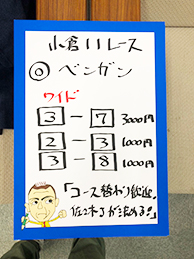 小倉11レース
◎ベンガン
ワイド
3-7 3000円
2-3 1000円
3-8 1000円
「コース替わり歓迎!
佐々木了が決める!」